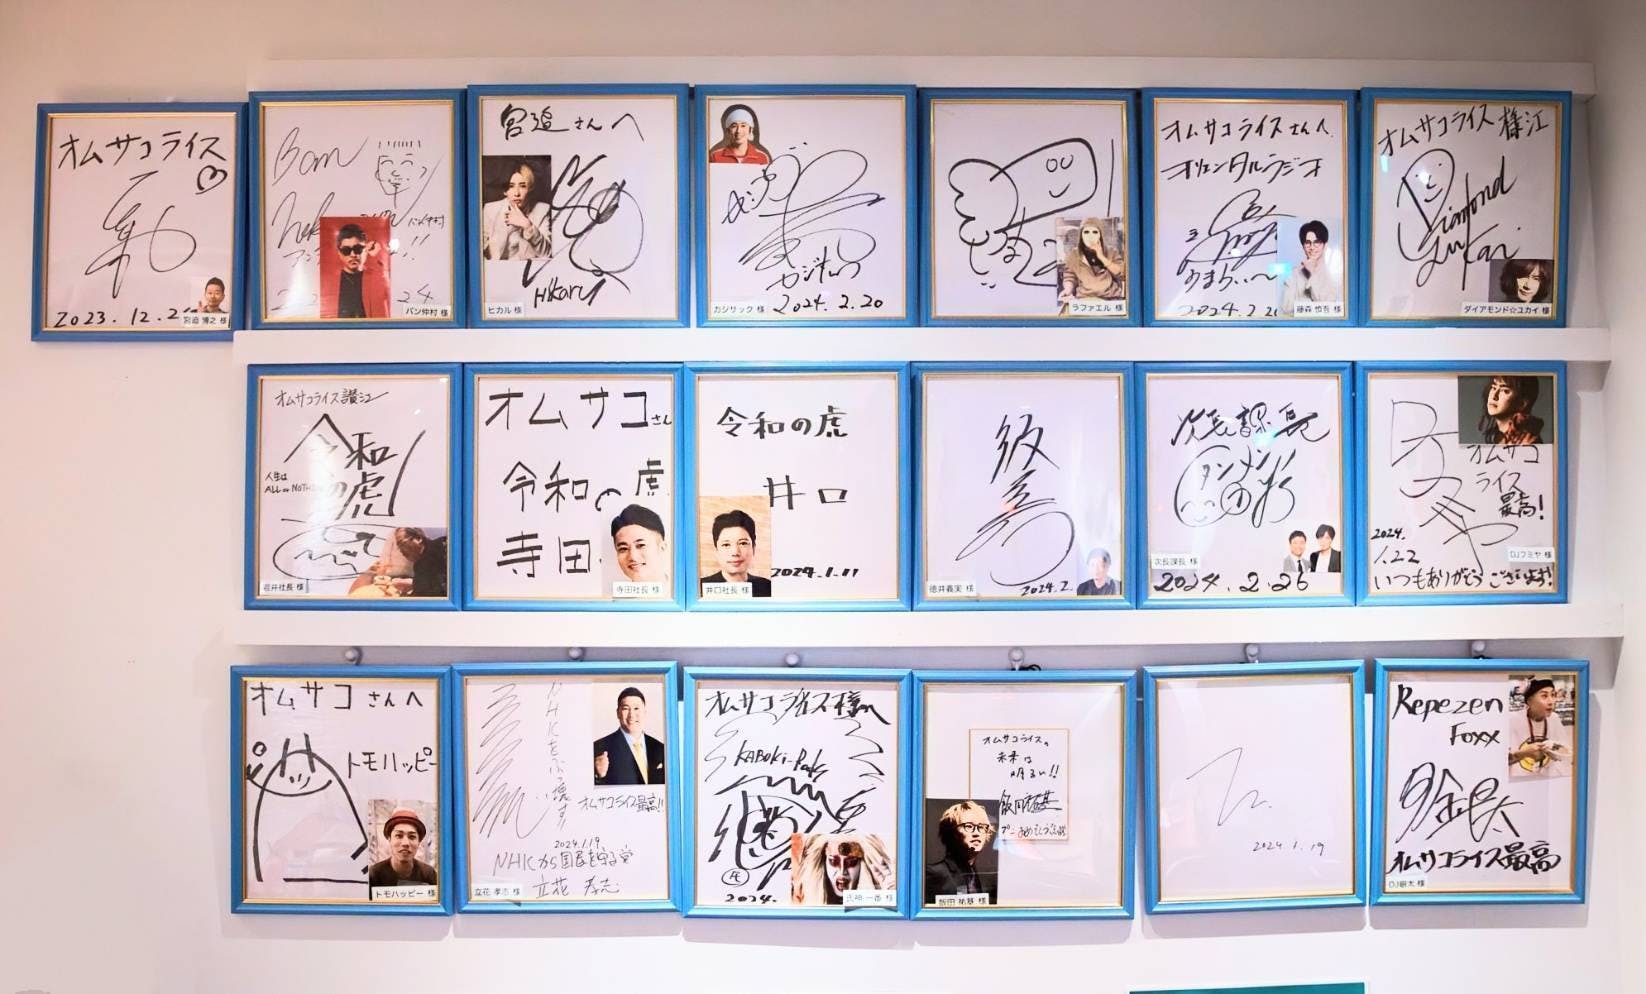 オムサコライス
2023.12.2
宮迫 博之 様
Bam
バン仲村
24
バン仲村 様
宮迫さんへ
Hikaru
ヒカル 様
カジサック
2024.2.20
カジサック 様
ラファエル 様
オムサコライスさんへ
オリエンタルラジオ
2024.2.2
藤森 慎吾 様
オムサコライス 様江
Diamond
Yukai
ダイアモンド☆ユカイ 様
オムサコライス讃江
令和
の虎
人生は
ALL or NOTHI
岩井社長 様
オムサコさん
令和の虎
寺田
寺田社長 様
令和の虎
井口
2024.1.11
井口社長 様
2024.2.
徳井義実 様
次長課長
タンメン
次長課長 様
2024.2.26
オムサコ
ライス
最高!
2024.
1.22
DJフミヤ 様
いつもありがとうございます!
オムサコさんへ
トモハッピー
トモハッピー 様
NHKをぶっ壊す!
オムサコライス最高!!
2024.1.19
NHKから国民を守る党
立花 孝志
立花 孝志 様
オムサコライス様へ
KABUKI-Rocks
2024.
氏神 一番 様
オムサコライスの
未来は
明るい!!
飯田祐基
飯田 祐基 様
2024.1.19
Repezen
Foxx
銀太
オムサコライス最高
DJ銀太 様